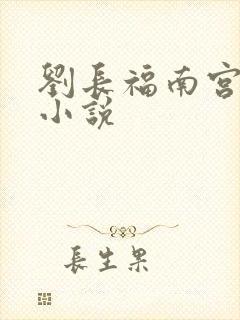 劉長福南宮
小說
長生果